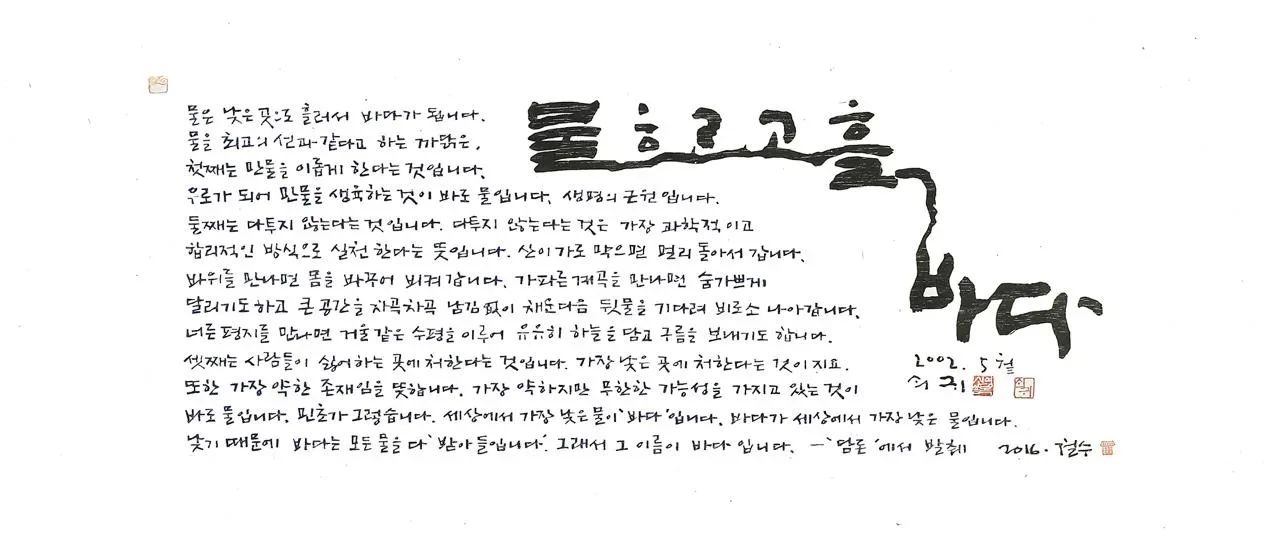 물은 낮은 곳으로 흘러서 바다가 됩니다.
물을 최고의 선과 같다고 하는 까닭은,
첫째는 만물을 이롭게 한다는 것입니다.
우로가 되어 만물을 생육하는 것이 바로 물입니다. 생명의 근원입니다.
둘째는 다투지 않는다는 것입니다. 다투지 않는다는 것은 가장 과학적이고
합리적인 방식으로 실천한다는 뜻입니다. 산이 가로 막으면 멀리 돌아서 갑니다.
바위를 만나면 몸을 바꾸어 비켜 갑니다. 가파른 계곡을 만나면 숨가쁘게
달리기도 하고 큰 공간을 차곡차곡 남김없이 채운 다음 뒷물을 기다려 비로소 나아갑니다.
너른 평지를 만나면 거울 같은 수평을 이루어 유유히 하늘을 담고 구름을 보내기도 합니다.
셋째는 사람들이 싫어하는 곳에 처한다는 것입니다. 가장 낮은 곳에 처한다는 것이지요.
또한 가장 약한 존재임을 뜻합니다. 가장 약하지만 무한한 가능성을 가지고 있는 것이
바로 물입니다. 민초가 그렇습니다. 세상에서 가장 낮은 물이 '바다'입니다. 바다가 세상에서 가장 낮은 물입니다.
낮기 때문에 바다는 모든 물을 다 '받아들입니다'. 그래서 그 이름이 바다입니다. —'담론'에서 발췌 2016. 철수
물 흐르고 흘
바다
2002. 5월
쇠귀